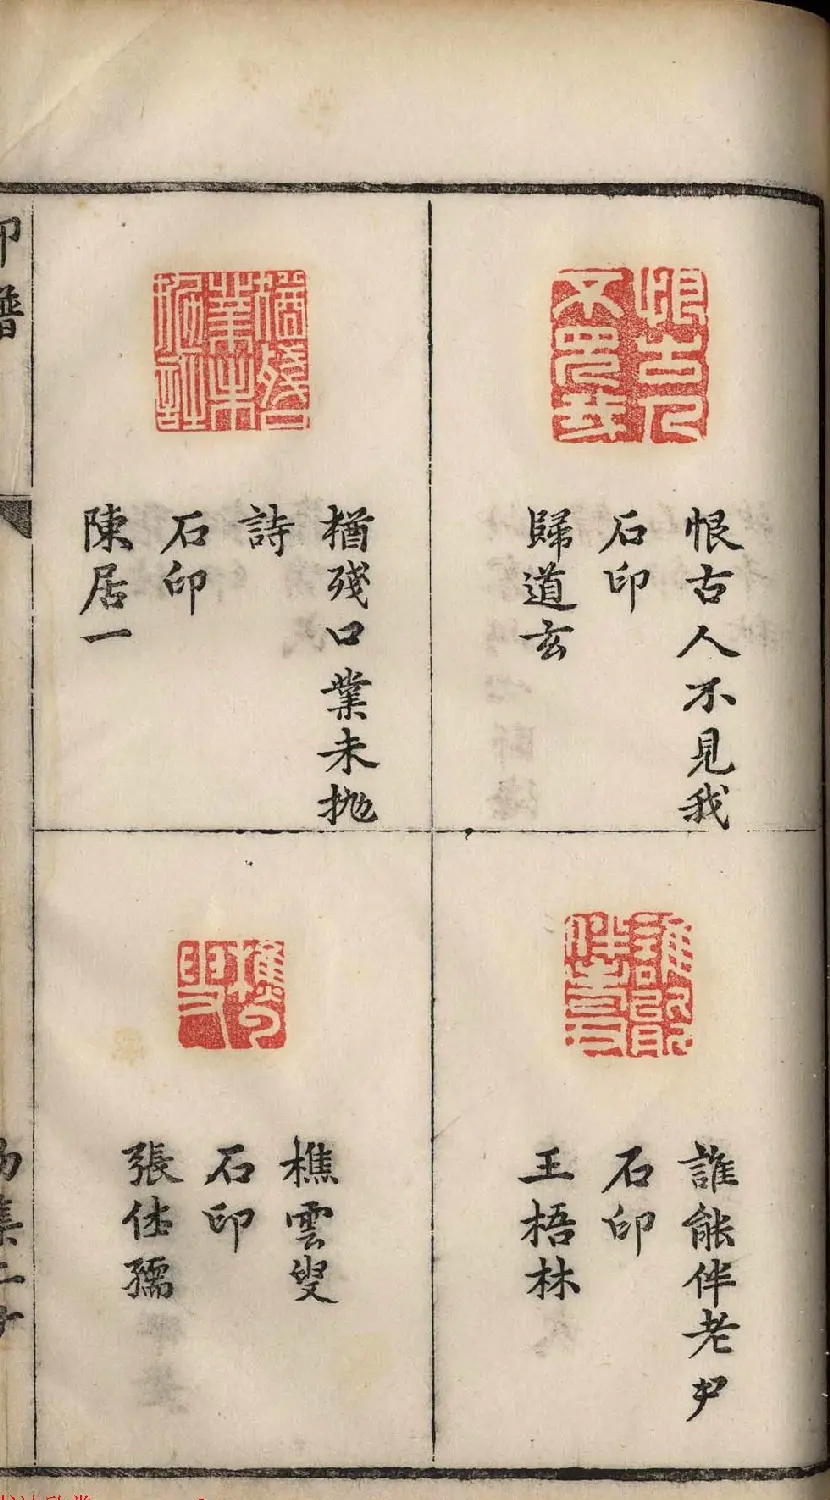 恨古人不見我
石印
歸道玄
誰能伴老尹
石印
王梧林
猶殘口業未拋
詩
石印
陳居一
樵雲叟
石印
張仕孺
印譜